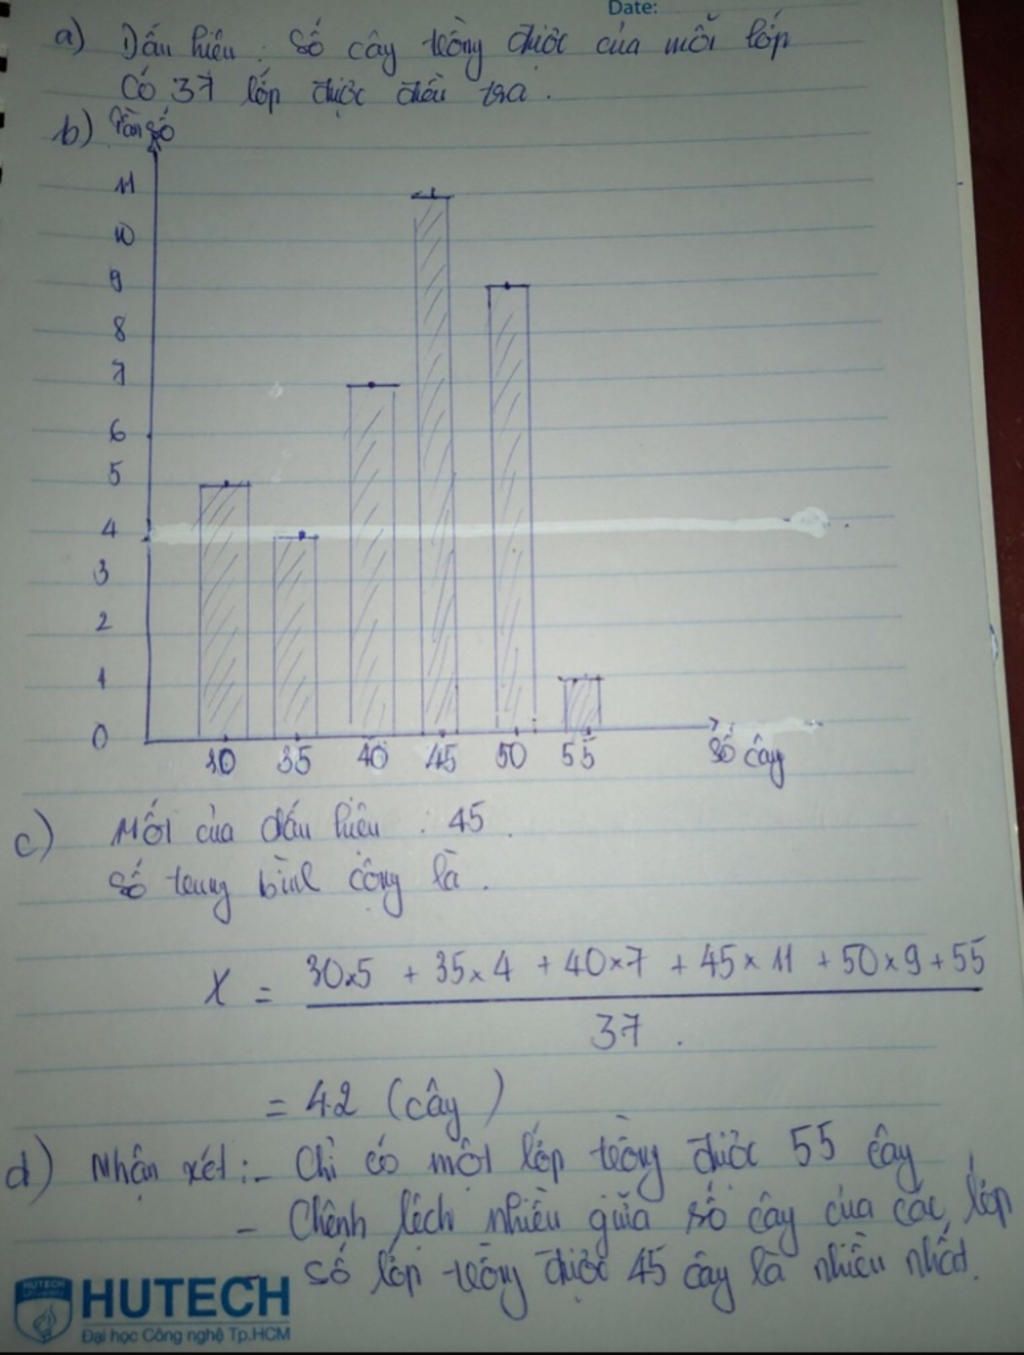 Date:
a) Dấu hiệu : Số cây trồng được của mỗi lớp
Có 37 lớp được điều tra.
b) Tần số
11
10
9
8
7
6
5
4
3
2
1
0
30 35 40 45 50 55 số cây
c) Mốt của dấu hiệu : 45.
Số trung bình cộng là.
X = 30x5 + 35x4 + 40x7 + 45x11 + 50x9 + 55
37.
= 42 (cây)
d) Nhận xét: - Chỉ có một lớp trồng được 55 cây
- Chênh lệch nhiều giữa số cây của các lớp
- số lớp trồng được 45 cây là nhiều nhất.
HUTECH
University
HUTECH
Đại học Công nghệ Tp.HCM